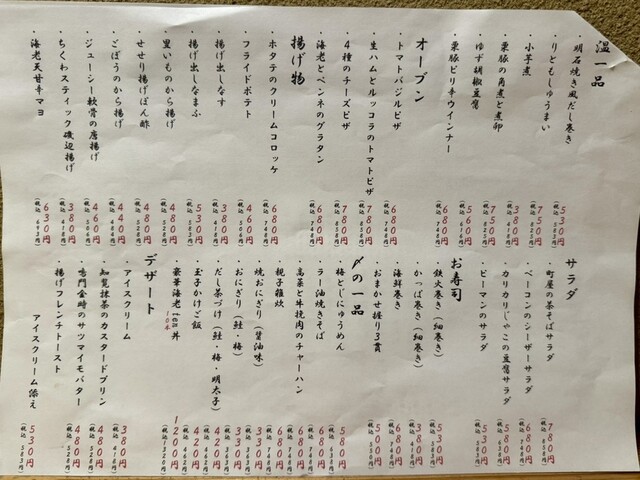 温一品
・明石焼き風だし巻き 530円
(税込 583円)
・りともしゅうまい 750円
(税込 825円)
・小芋煮 380円
(税込 418円)
・栗豚の角煮と煮卵 750円
(税込 825円)
・ゆず胡椒豆腐 510円
(税込 561円)
・栗豚ピリ辛ウインナー 680円
(税込 748円)
オーブン
・トマトバジルピザ 680円
(税込 748円)
・生ハムとルッコラのトマトピザ 780円
(税込 858円)
・4種のチーズピザ 780円
(税込 858円)
・海老とペンネのグラタン 680円
(税込 748円)
揚げ物
・ホタテのクリームコロッケ 680円
(税込 748円)
・フライドポテト 460円
(税込 506円)
・揚げ出しなす 380円
(税込 418円)
・揚げ出しなまふ 530円
(税込 583円)
・里いものから揚げ 480円
(税込 528円)
・せせり揚げぽん酢 480円
(税込 528円)
・ごぼうのから揚げ 440円
(税込 484円)
・ジューシー軟骨の唐揚げ 460円
(税込 506円)
・ちくわスティック磯辺揚げ 380円
(税込 418円)
・海老天甘辛マヨ 630円
(税込 693円)
サラダ
・町屋の茶そばサラダ 780円
(税込 858円)
・ベーコンのシーザーサラダ 680円
(税込 748円)
・カリカリじゃこの豆腐サラダ 580円
(税込 638円)
・ピーマンのサラダ 530円
(税込 583円)
お寿司
・鉄火巻き(細巻き) 530円
(税込 583円)
・かっぱ巻き(細巻き) 380円
(税込 418円)
・海鮮巻き 680円
(税込 748円)
・おまかせ握り3貫 500円
(税込 550円)
〆の一品
・梅とじにゅうめん 580円
(税込 638円)
・ラー油焼きそば 680円
(税込 748円)
・高菜と牛挽肉のチャーハン 680円
(税込 748円)
・親子雑炊 680円
(税込 748円)
・焼おにぎり(醤油味) 330円
(税込 363円)
・おにぎり(鮭・梅) 330円
(税込 363円)
・だし茶づけ(鮭・梅・明太子) 420円
(税込 462円)
・玉子かけご飯 420円
(税込 462円)
・豪華海老ten丼 1200円
10本
(税込 1320円)
デザート
・アイスクリーム 380円
(税込 418円)
・知覧抹茶のカスタードプリン 480円
(税込 528円)
・鳴門金時のサツマイモバター 480円
(税込 528円)
・揚げフレンチトースト
アイスクリーム添え 530円
(税込 583円)